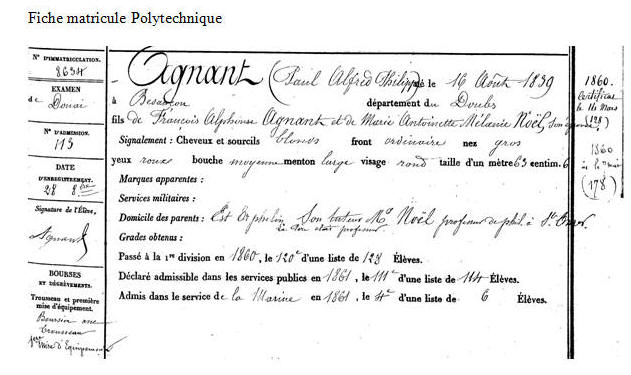 Fiche matricule Polytechnique
N° D'IMMATRICULATION.
8634
EXAMEN
de Douai
N° D'ADMISSION.
113
DATE
D'ENREGISTREMENT.
28 8bre
Signature de l'Élève,
Agnant
BOURSES
ET DÉGRÈVEMENTS.
Trousseau et première
mise d'équipement.
Boursier avec
trousseau
Agnant (Paul Alfred Philippe) né le 16 Août 1839
à Besançon département du Doubs
fils de François Alphonse Agnant et de Marie Antoinette Mélanie Noël, son épouse.
Signalement : Cheveux et sourcils blonds front ordinaire nez gros
yeux roux bouche moyenne menton large visage rond taille d'un mètre 63 centim. 6
Marques apparentes :
Services militaires :
Domicile des parents : Est Orphelin Son tuteur Mr Noël professeur de phil. à St Omer.
Le Père était professeur
Grades obtenus :
Passé à la 1re division en 1860, le 120e d'une liste de 128 Élèves.
Déclaré admissible dans les services publics en 1861, le 111e d'une liste de 114 Élèves.
Admis dans le service de la Marine en 1861, le 4e d'une liste de 6 Élèves.
1860.
Certificat
le 14 Mars
(128)
1860
(178)